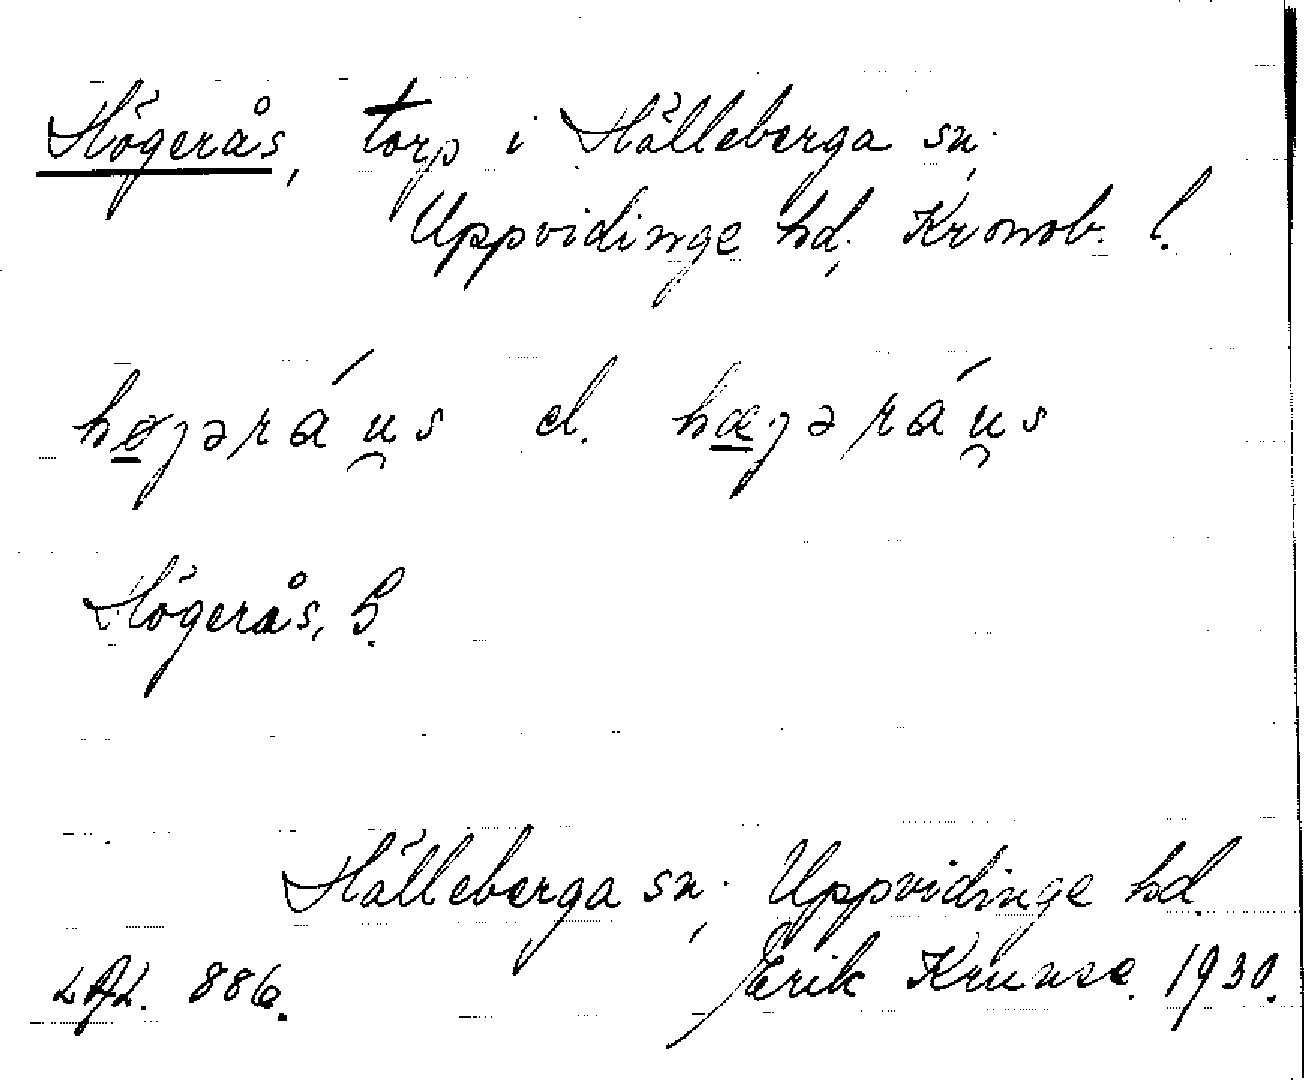 Högerås, torp i Hälleberga sn.,
Uppvidinge hd., Kronob. l.
høgərá u̯s el. hægərá u̯s
Högerås, G.
Hälleberga sn., Uppvidinge hd.
LAL. 886. Erik Kruuse. 1930.